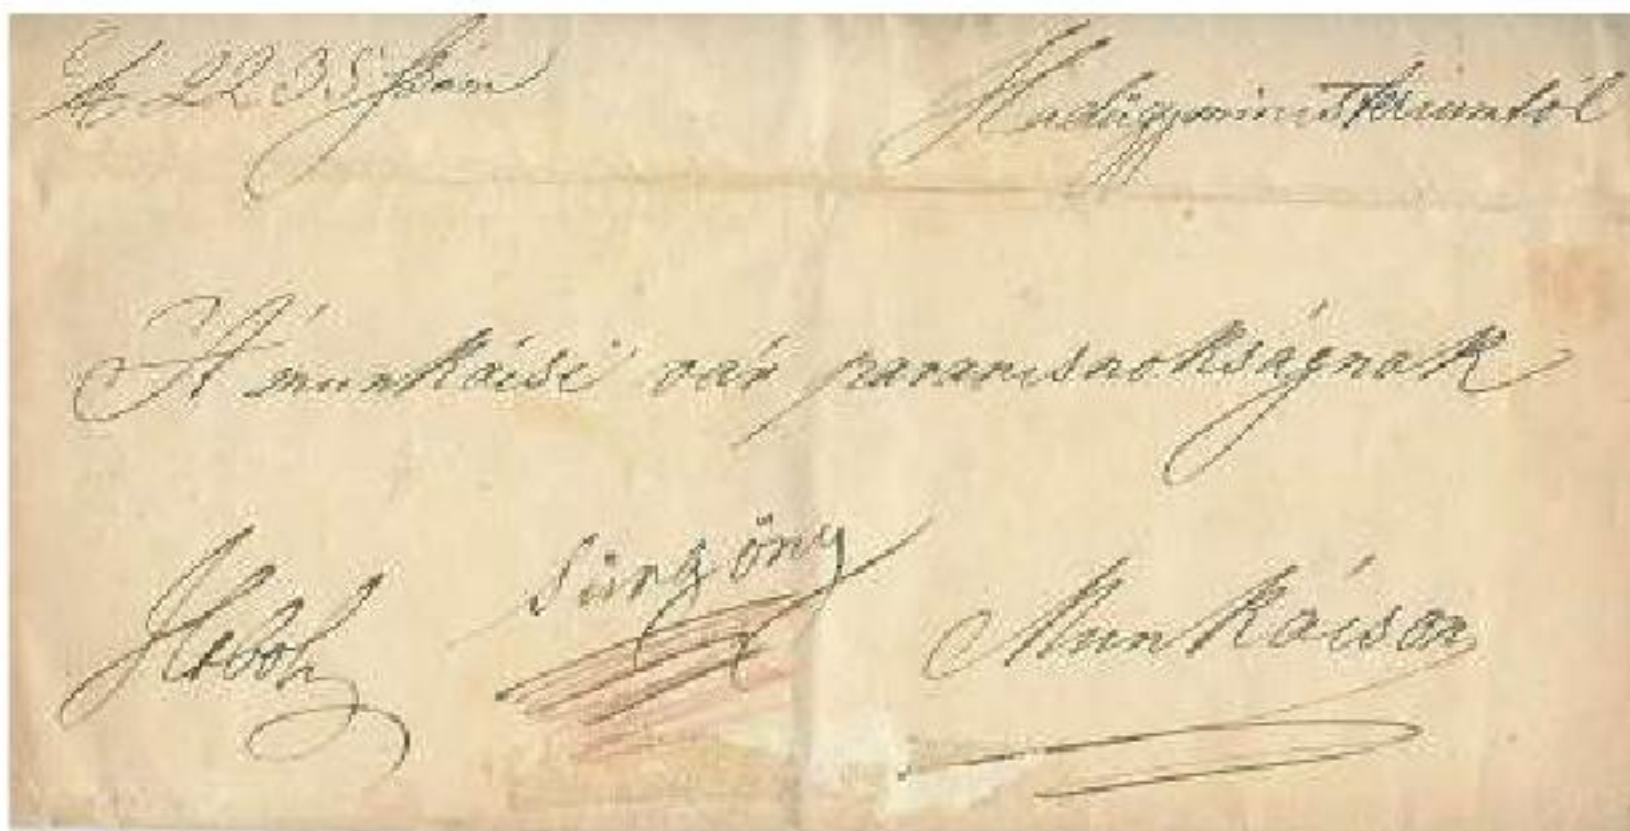 2235 Hadügyministeriumtól
A munkácsi vár parancsnokságnak
sürgöny
Munkácson